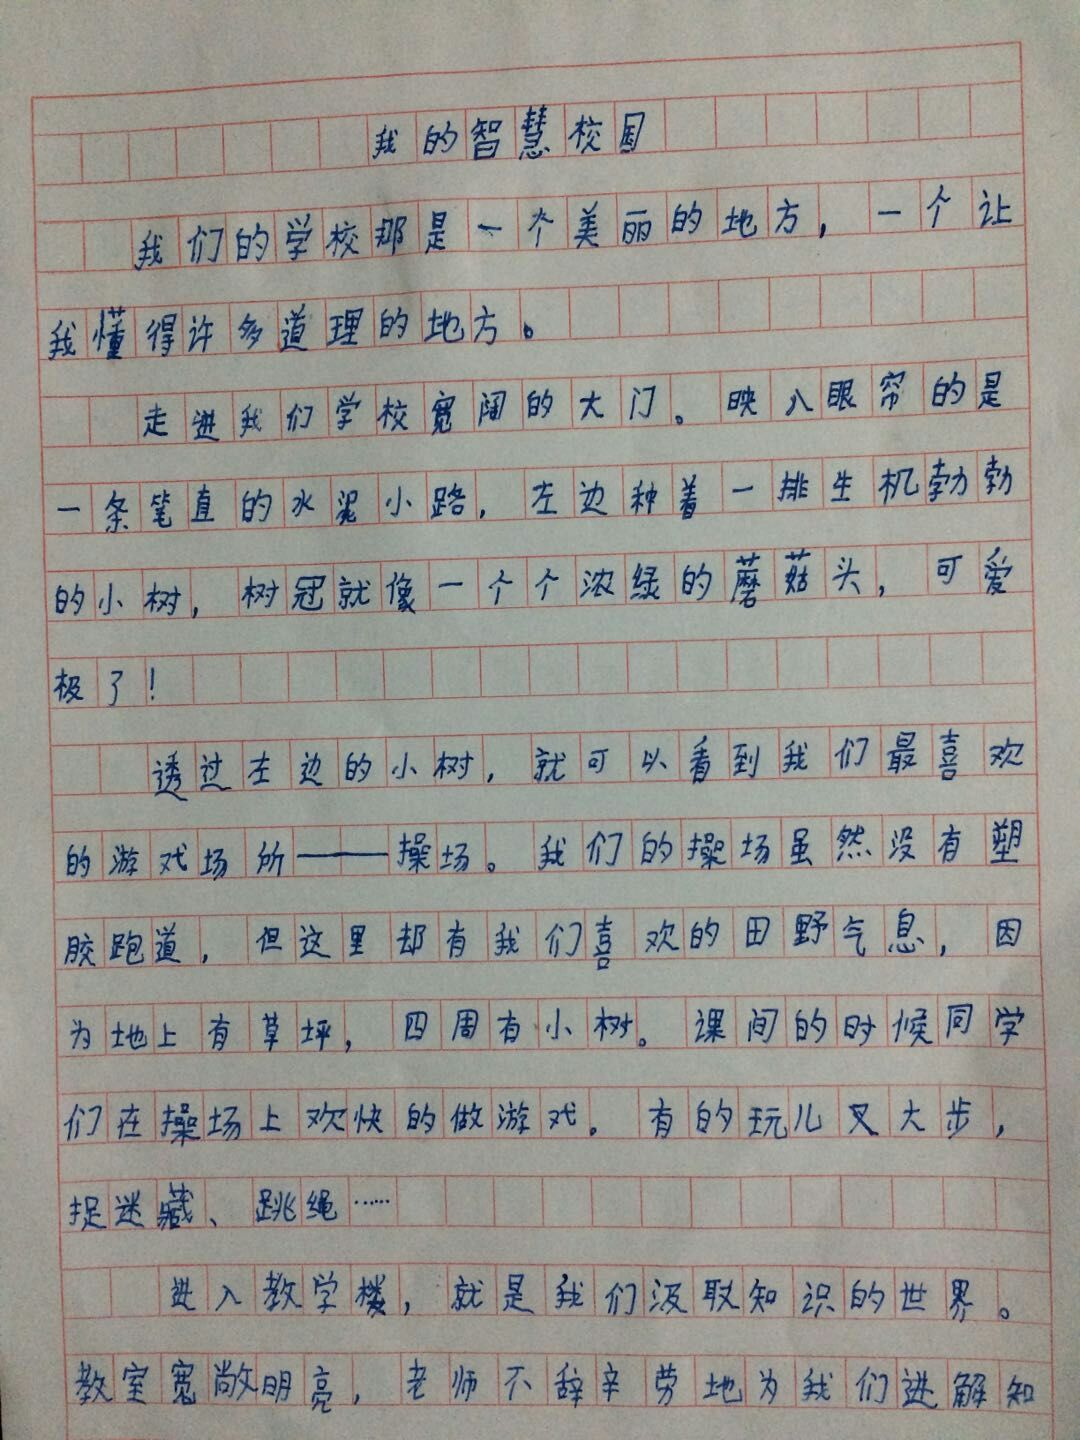 我的智慧校园
我们的学校那是一个美丽的地方，一个让
我懂得许多道理的地方。
走进我们学校宽阔的大门。映入眼帘的是
一条笔直的水泥小路，左边种着一排生机勃勃
的小树，树冠就像一个个浓绿的蘑菇头，可爱
极了！
透过左边的小树，就可以看到我们最喜欢
的游戏场所——操场。我们的操场虽然没有塑
胶跑道，但这里却有我们喜欢的田野气息，因
为地上有草坪，四周有小树。课间的时候同学
们在操场上欢快的做游戏。有的玩儿叉大步，
捉迷藏、跳绳……
进入教学楼，就是我们汲取知识的世界。
教室宽敞明亮，老师不辞辛劳地为我们进解知